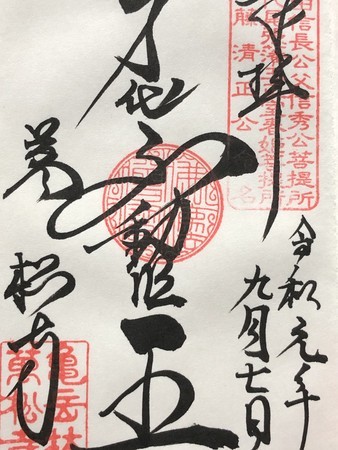 信長公父信秀公菩提所
室春姫菩提所
藤清正公
拝
令和元年
九月七日
身代不動明王
萬松寺
亀岳林
萬松寺